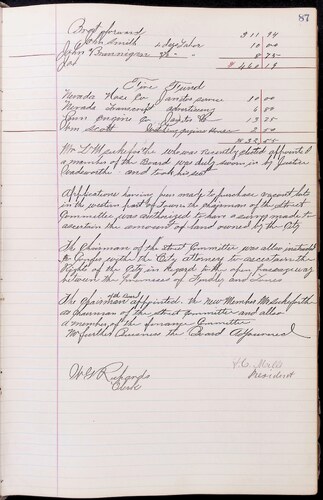 87
Bro't forward 311 94
John Smith 2 days labor 10 00
John
Fire Fund
Nevada Hose Co Janitor services 10 00
Nevada Transcript advertising
Engine Co Janitor 13 25
Wm Scott Engine House 2 50
Mr L M Sukeforth who was recently elected appointed
a member of the Board was duly sworn in by Justice
Wadsworth and took his seat
Applications having been made to purchase vacant lots
in the western part of town the chairman of the Street
Committee was authorized to have a survey made to
ascertain the amount of land owned by the City
The Chairman of the Street Committee was also instructed
to Confer with the City Attorney to ascertain the
Right of the City in Regard to the open passage way
between the Premises of and
The Chairman then appointed the new Member Mr Sukeforth
as Chairman of the Street Committee and also
a member of the Finance Committee
No further Business the Board Adjourned
President
W. G. Richards
Clerk